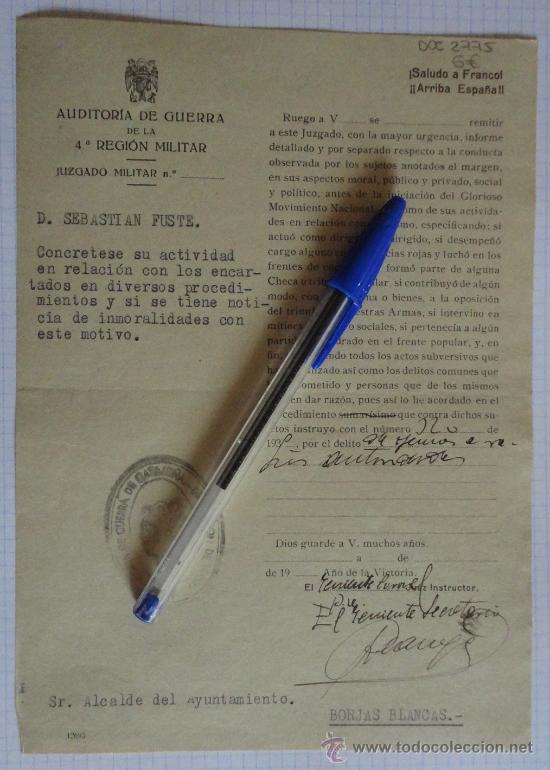 DOC 2775
6€
¡Saludo a Franco!
¡¡Arriba España!!
AUDITORÍA DE GUERRA
DE LA
4ª REGIÓN MILITAR
JUZGADO MILITAR n.º
D. SEBASTIAN FUSTE.
Concretese su actividad
en relación con los encar-
tados en diversos procedi-
mientos y si se tiene noti-
cia de inmoralidades con
este motivo.
Ruego a V se remitir
a este Juzgado, con la mayor urgencia, informe
detallado y por separado respecto a la conducta
observada por los sujetos anotados el margen,
en sus aspectos moral, público y privado, social
y político, antes de la iniciación del Glorioso
Movimiento Nacional, como de sus activida-
des en relación con smo, especificando; si
actuó como dirig irigido, si desempeñó
cargo alguno en cias rojas y luchó en los
frentes de com formó parte de alguna
Checa u tri lar, si contribuyó de algún
modo, con na o bienes, a la oposición
del triunf estras Armas, si intervino en
mítines sociales, si pertenecía a algún
partido drado en el frente popular, y, en
fin, ndo todos los actos subversivos que
ha lizado así como los delitos comunes que
ometido y personas que de los mismos
en dar razón, pues así lo he acordado en el
cedimiento sumarísimo que contra dichos su-
etos instruyo con el número de
193 , por el delito
Dios guarde a V. muchos años.
a de
de 19 Año de la Victoria.
El Juez Instructor.
El Teniente Secretario
Sr. Alcalde del Ayuntamiento.
BORJAS BLANCAS.-
todocoleccion
www.todocoleccion.net